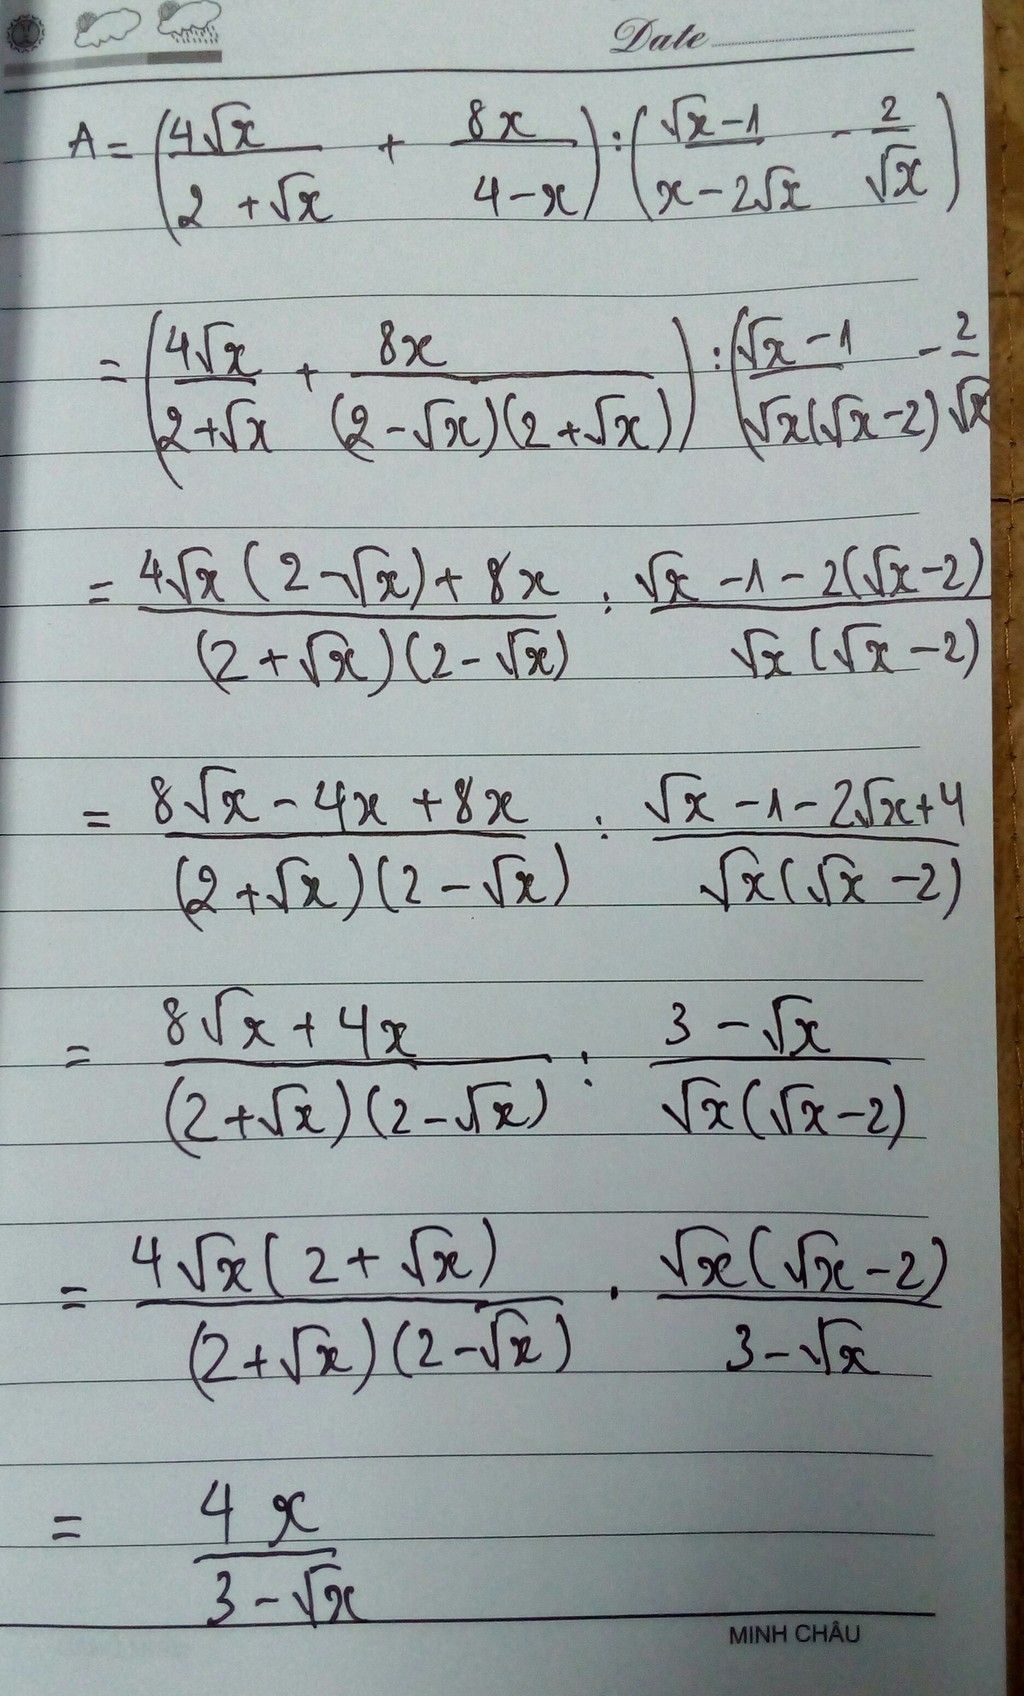 Date
A = (4√x / 2 + √x + 8x / 4 - x) : (√x - 1 / x - 2√x - 2 / √x)
= (4√x / 2 + √x + 8x / (2 - √x)(2 + √x)) : (√x - 1 / √x(√x - 2) - 2 / √x
= 4√x(2 - √x) + 8x / (2 + √x)(2 - √x) : √x - 1 - 2(√x - 2) / √x(√x - 2)
= 8√x - 4x + 8x / (2 + √x)(2 - √x) : √x - 1 - 2√x + 4 / √x(√x - 2)
= 8√x + 4x / (2 + √x)(2 - √x) : 3 - √x / √x(√x - 2)
= 4√x(2 + √x) / (2 + √x)(2 - √x) . √x(√x - 2) / 3 - √x
= 4x / 3 - √x
MINH CHÂU